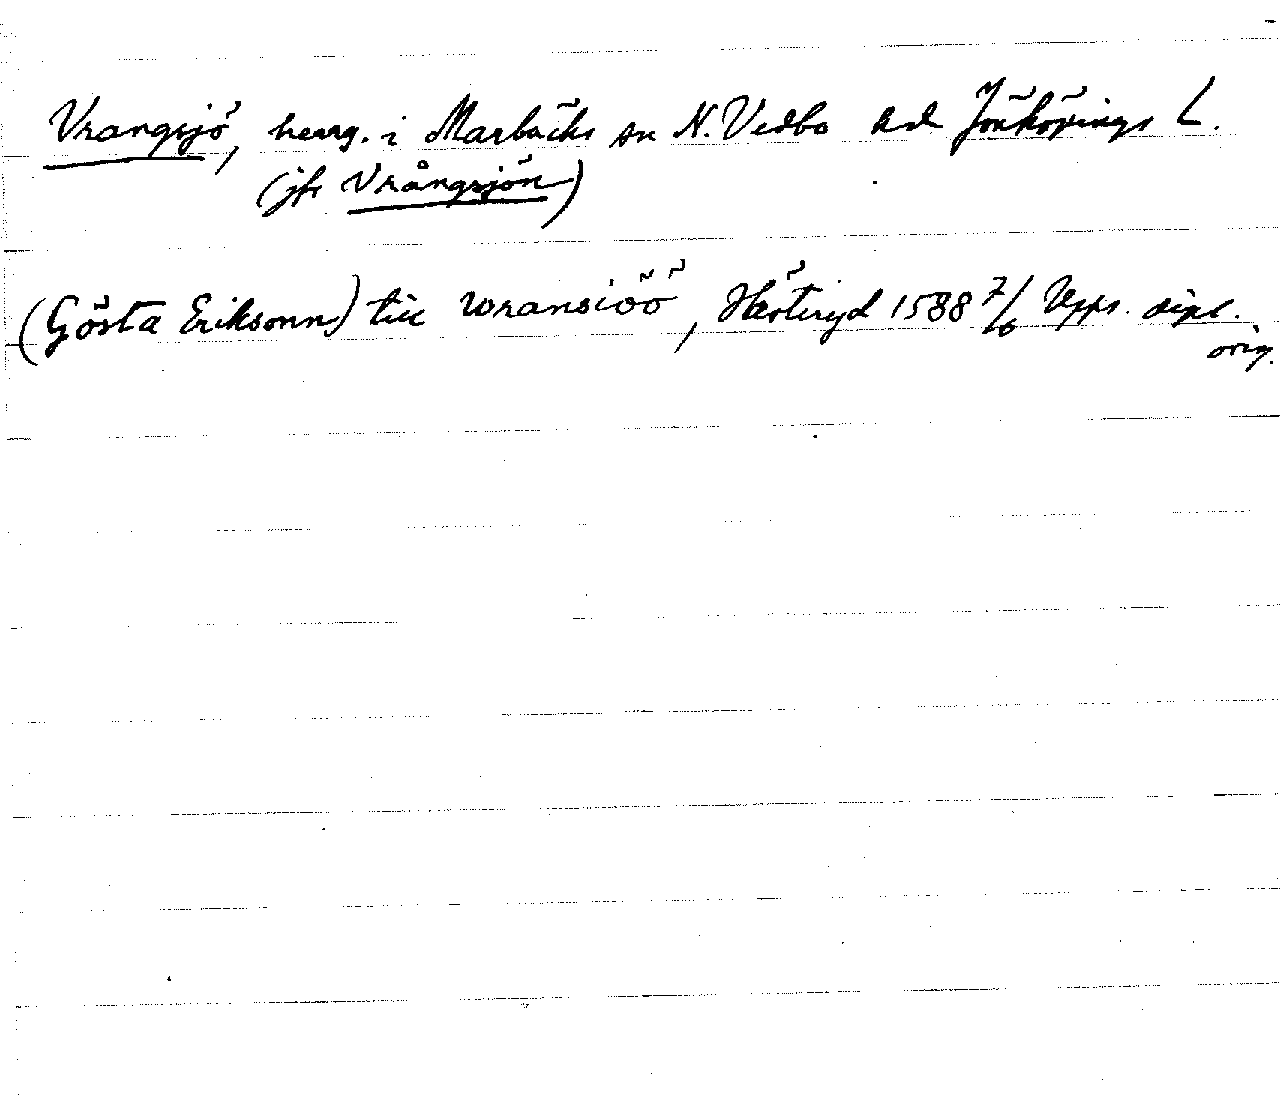 Vrangsjö, herrg. i Marbäcks sn N. Vedbo hd Jönköpings L.
(jfr Vrångsjön)
(Gösta Eriksonn) till wransiöö, 1588 7/6 Upps. dipl.
orig.